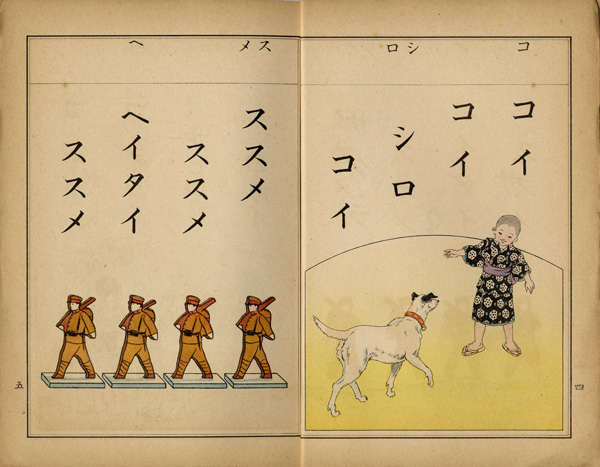 コ
シロ
コイ
コイ
シロ
コイ
四
スメ
ヘ
ススメ
ススメ
ヘイタイ
ススメ
五